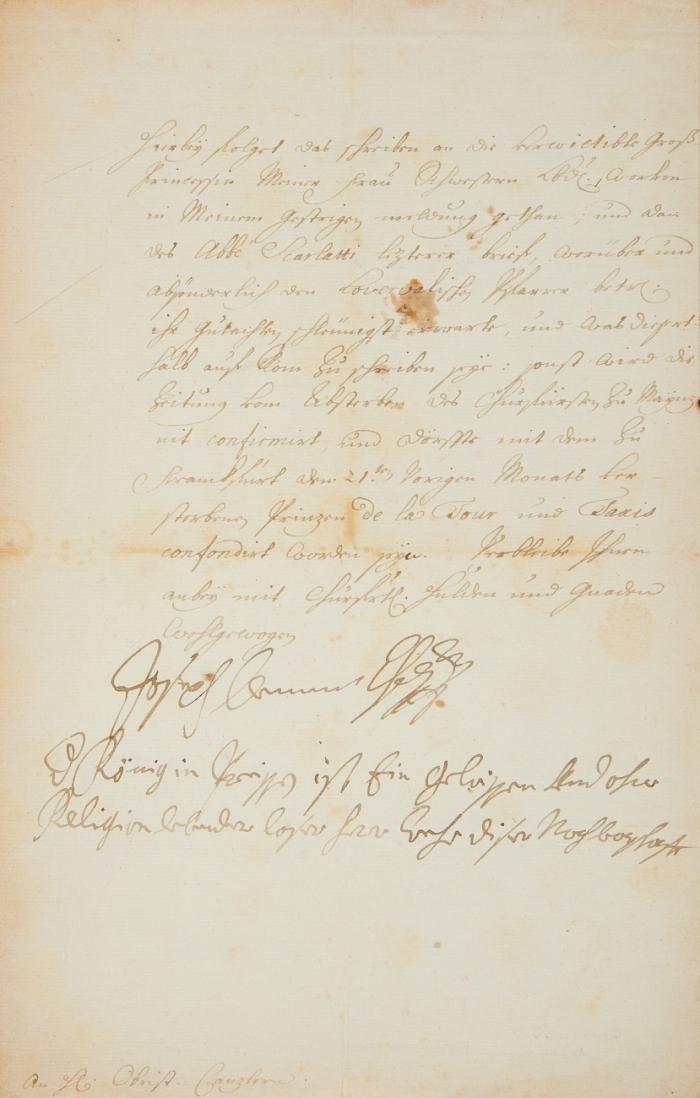 Hierbeÿ folget das schreiben an die verwittibte Groß
Princessin Meiner Frau Schwestern Lbd:, worvon
in Meinem Gestrigen meldung gethan; und dan
des Abbé Scarlatti lezterer brieff, worüber und
absonderlich den Pfarrer betr:
ihr Gutachten schleünigst erwarte, und was dießert
halb auf Rom zu schreiben seÿe: sonst wird die
Zeitung vom Absterben des Churfürsten zu Maÿnz
nit confirmirt, und dörffte mit dem zu
Franckfurt den 21.ten Vorigen Monats ver-
storbenen Prinzen de la Tour und Taxis
confondirt worden seÿn. Verbleibe Ihnen
anbeÿ mit Churfrtl: Hulden und Gnaden
Wohlgewogen
Joseph Clement Churfürst
D König in Preissen ist Ein und ohne
Religion lebender loser herr wehe diser Nachbarschafft
An H: Obrist-Canzlern.